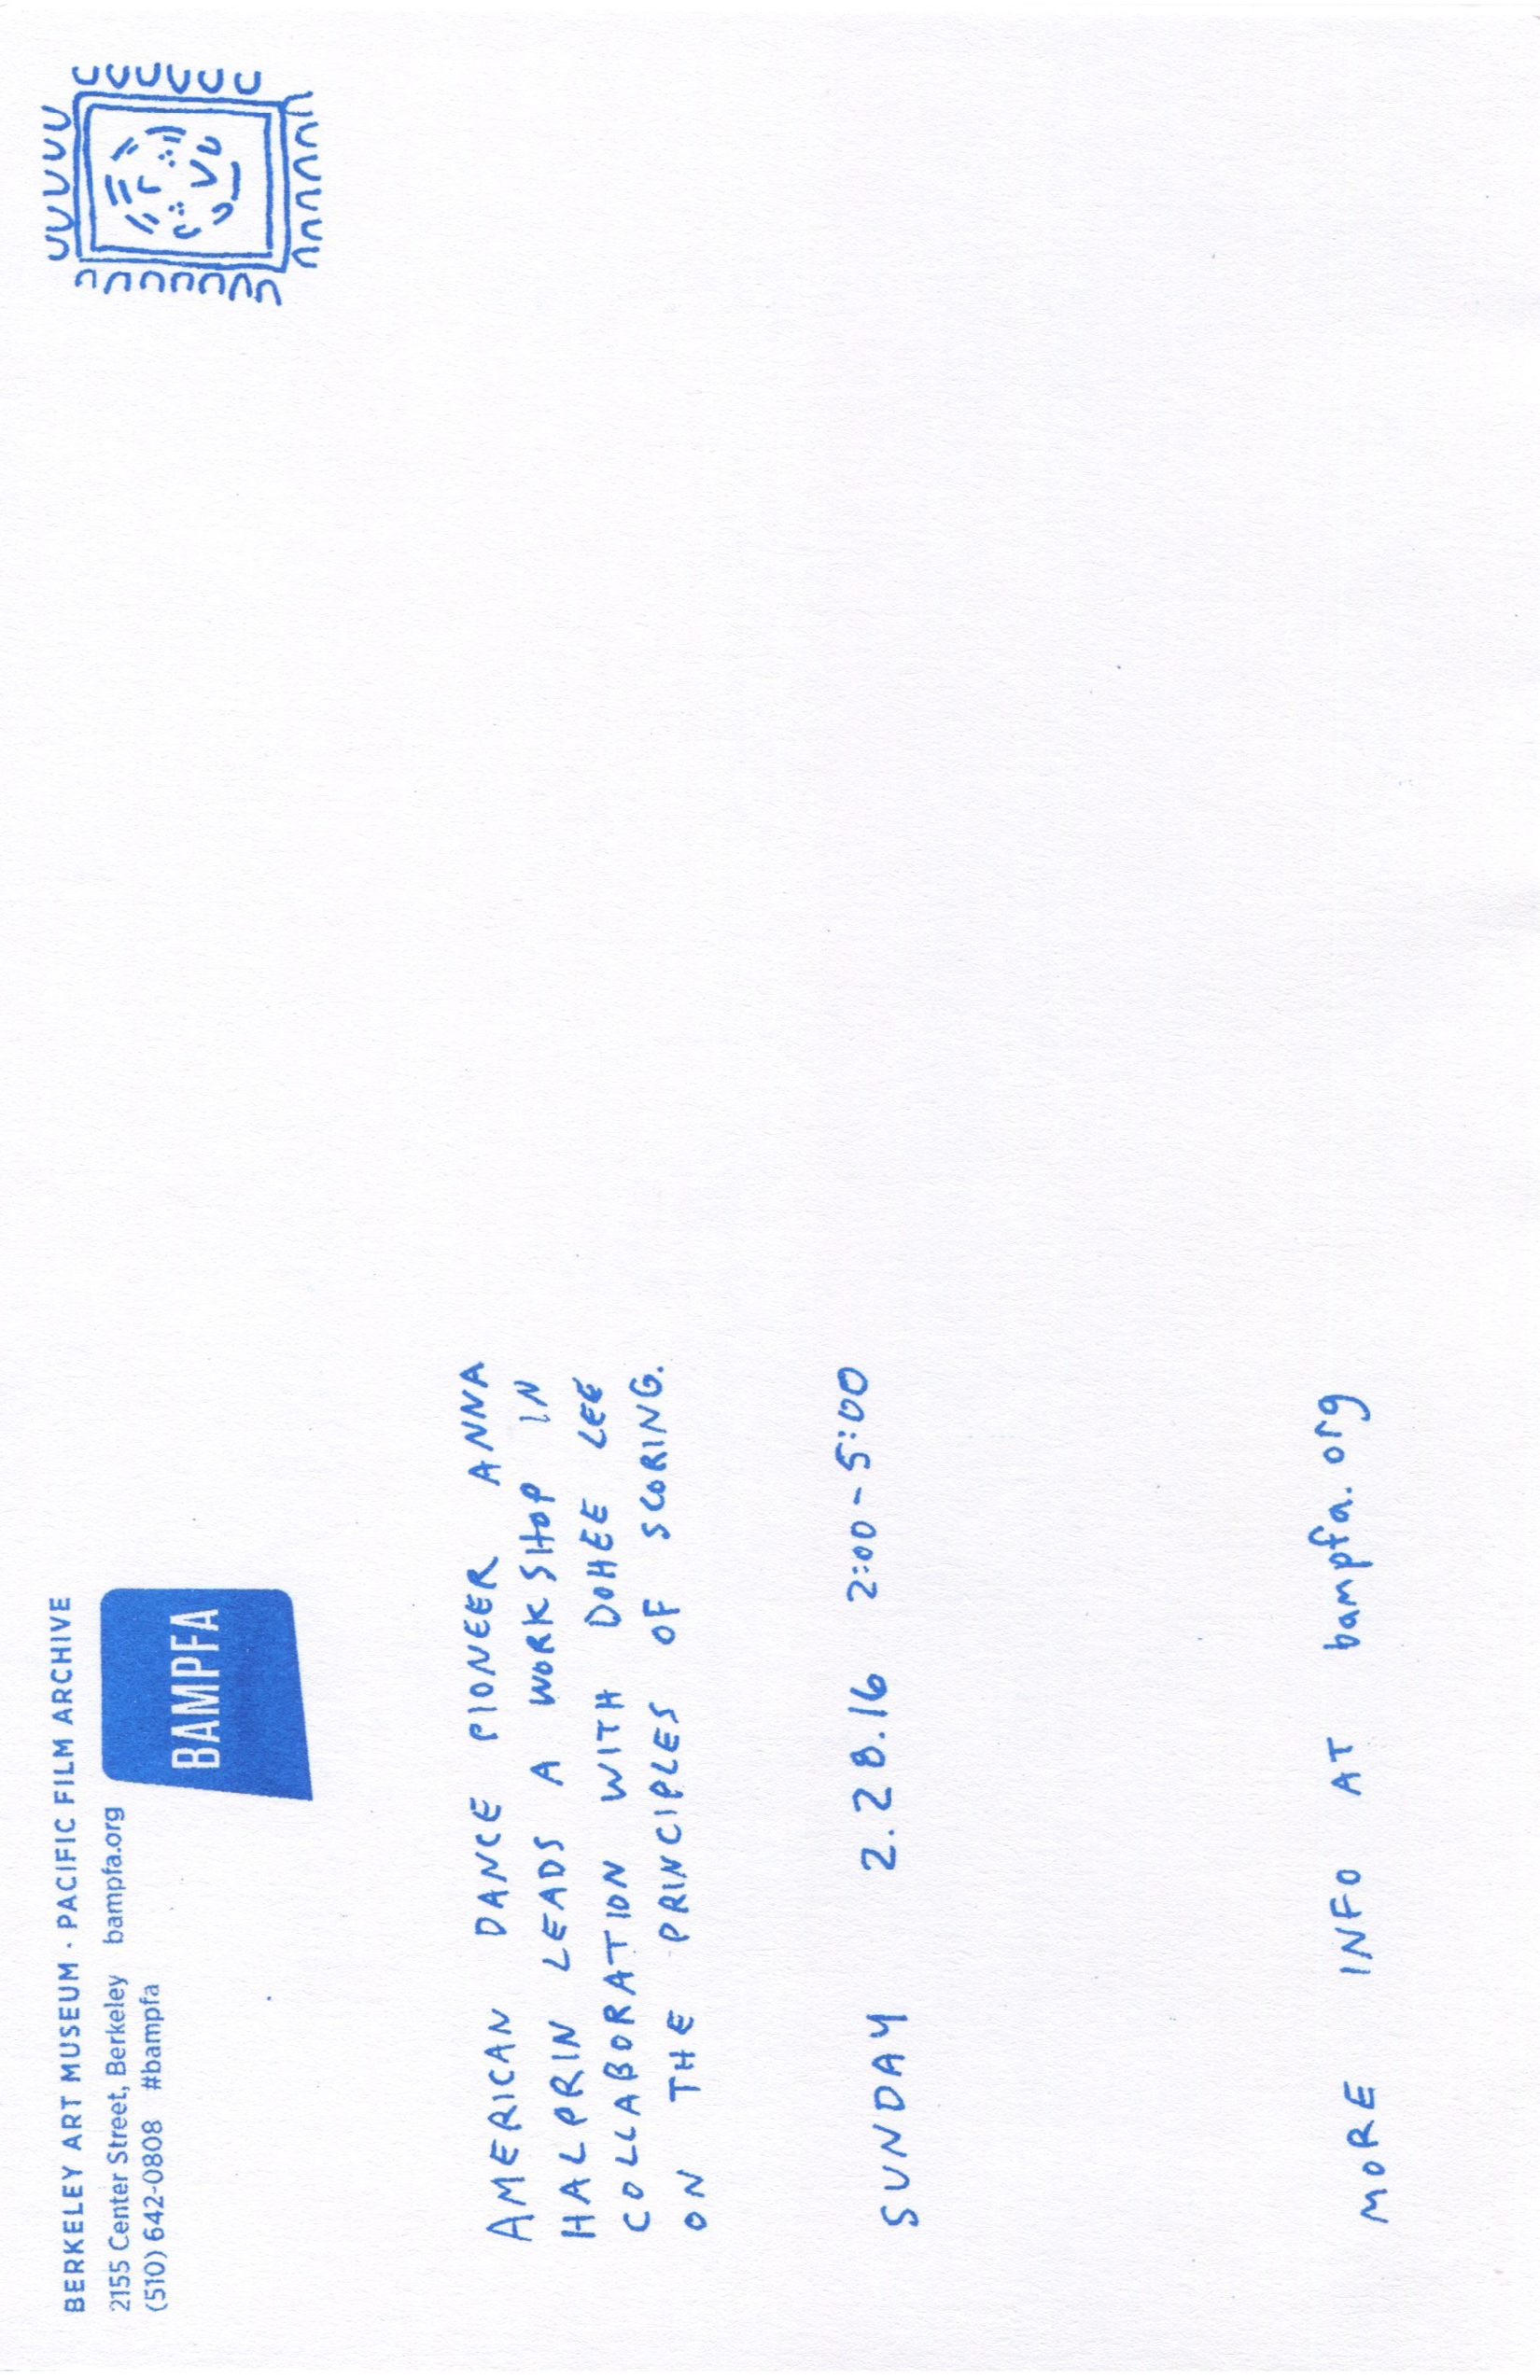 BERKELEY ART MUSEUM · PACIFIC FILM ARCHIVE
2155 Center Street, Berkeley bampfa.org
(510) 642-0808 #bampfa
BAMPFA
AMERICAN DANCE PIONEER ANNA
HALPRIN LEADS A WORKSHOP IN
COLLABORATION WITH DOHEE LEE
ON THE PRINCIPLES OF SCORING.
SUNDAY 2.28.16 2:00-5:00
MORE INFO AT bampfa.org